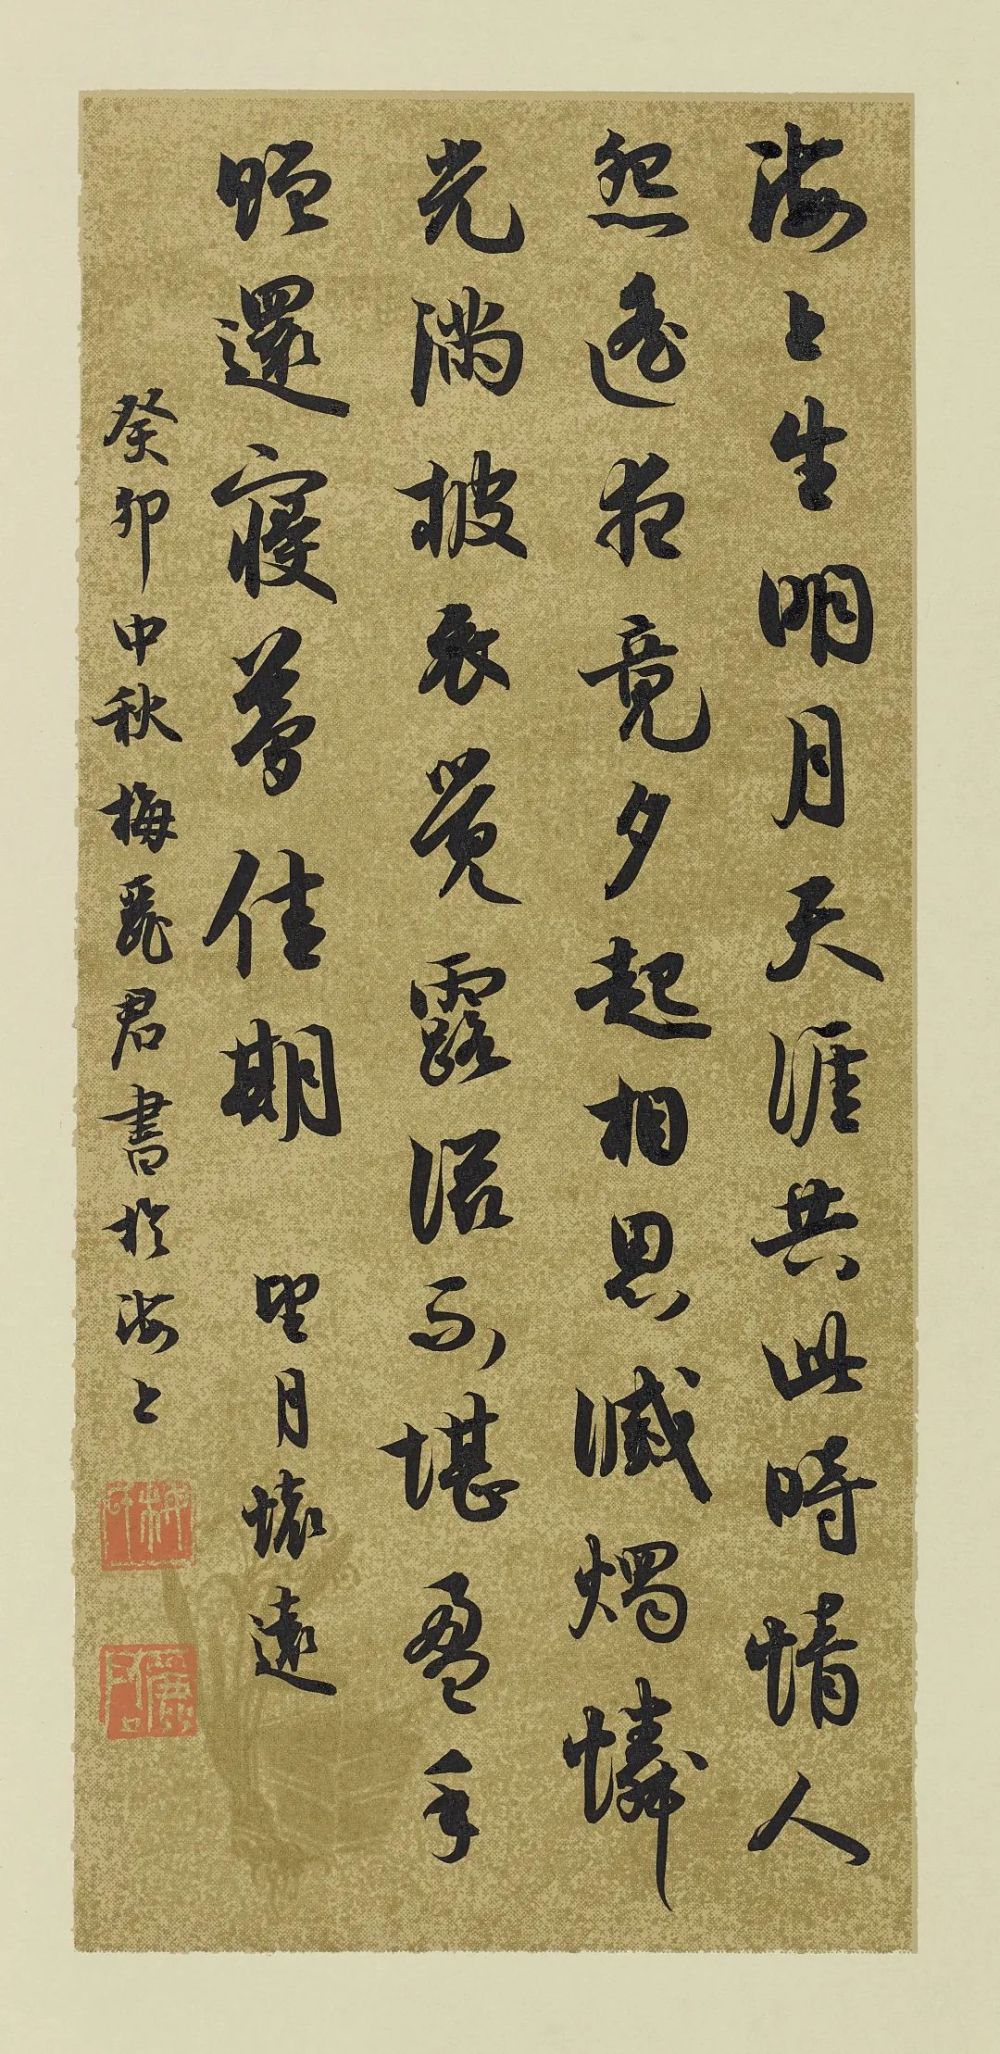 海上生明月天涯共此時情人
怨遥夜竟夕起相思滅燭憐
光滿披衣覺露滋不堪盈手
贈還寢夢佳期 望月懷遠
癸卯中秋梅麗君書於海上
梅
麗君